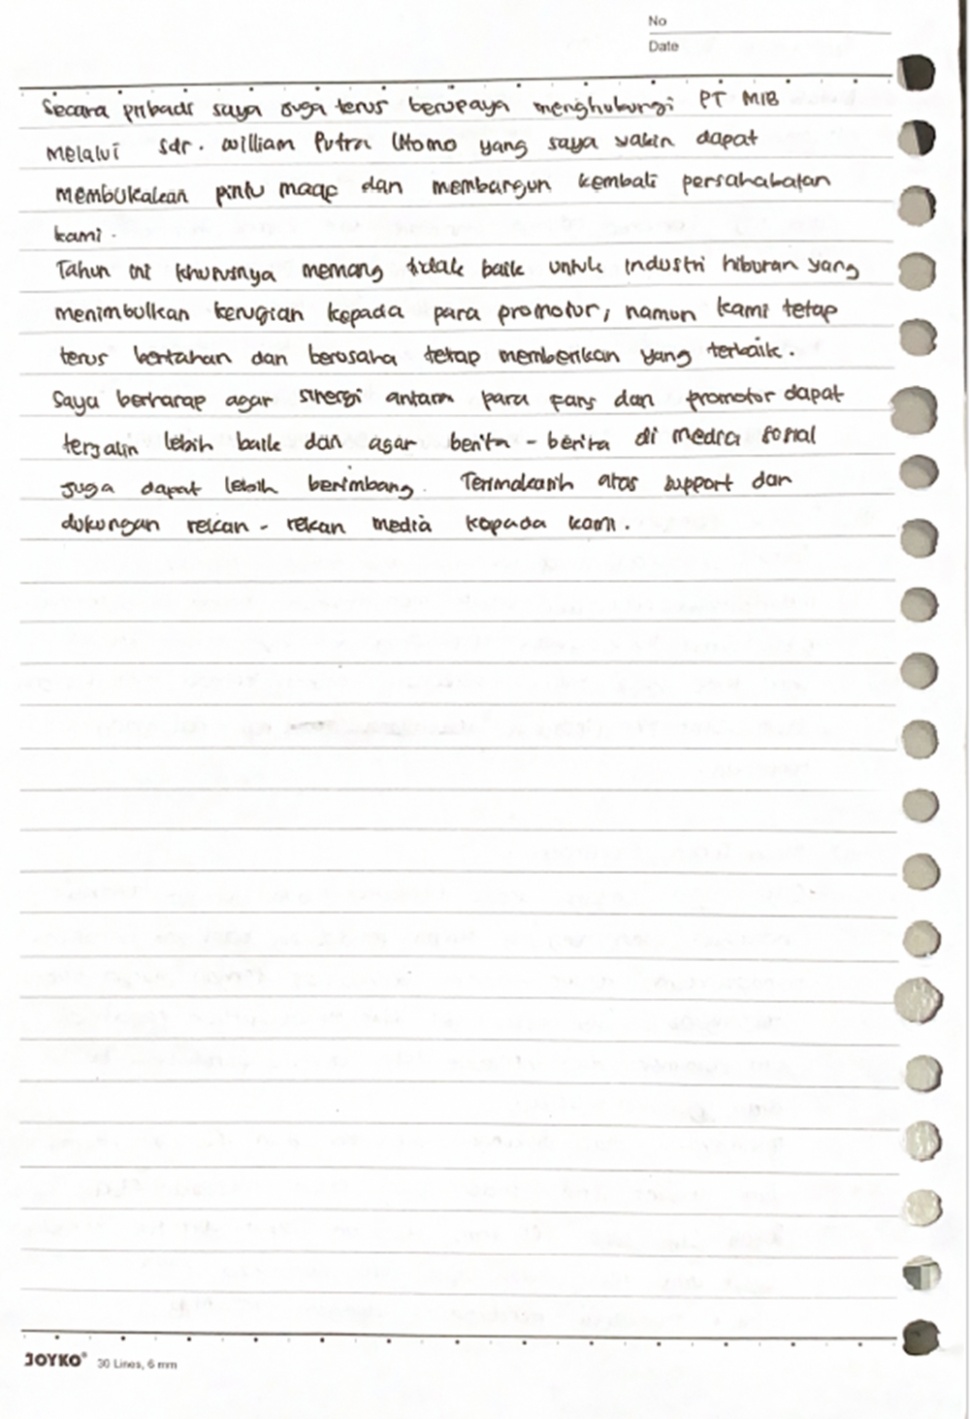 No
Date
Secara pribadi saya juga terus berupaya menghubungi PT MIB
melalui Sdr. William Putra Utomo yang saya yakin dapat
membukakan pintu maaf dan membangun kembali persahabatan
kami.
Tahun ini khususnya memang tidak baik untuk industri hiburan yang
menimbulkan kerugian kepada para promotor, namun kami tetap
terus bertahan dan berusaha tetap memberikan yang terbaik.
Saya berharap agar sinergi antara para fans dan promotor dapat
terjalin lebih baik dan agar berita - berita di media sosial
juga dapat lebih berimbang. Terimakasih atas support dan
dukungan rekan - rekan media kepada kami.
JOYKO® 30 Lines, 6 mm